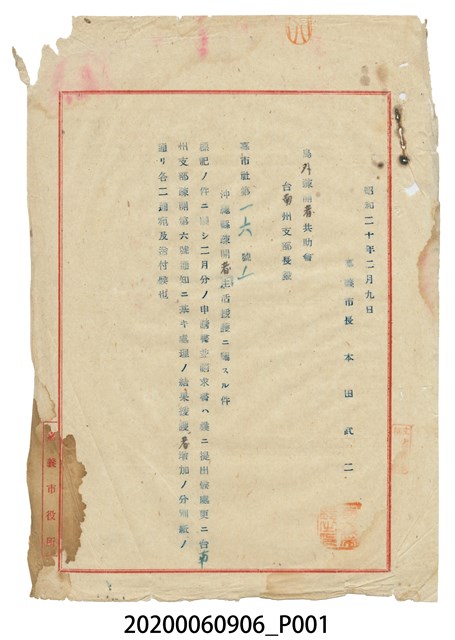 昭和二十年二月九日
嘉義市長 本田武二
島外疎開者共助會
台南州支部長殿
嘉市社第一六號ノ一
沖繩縣疎開者生活援護ニ關スル件
標記ノ件ニ關シ二月分ノ申請書並請求書ハ曩ニ提出候處更ニ台南
州支部疎開第六號通知ニ基キ處理ノ結果援護者增加ノ分別紙ノ
通リ各二通宛及送付候也
嘉義市役所
20200060906_P001